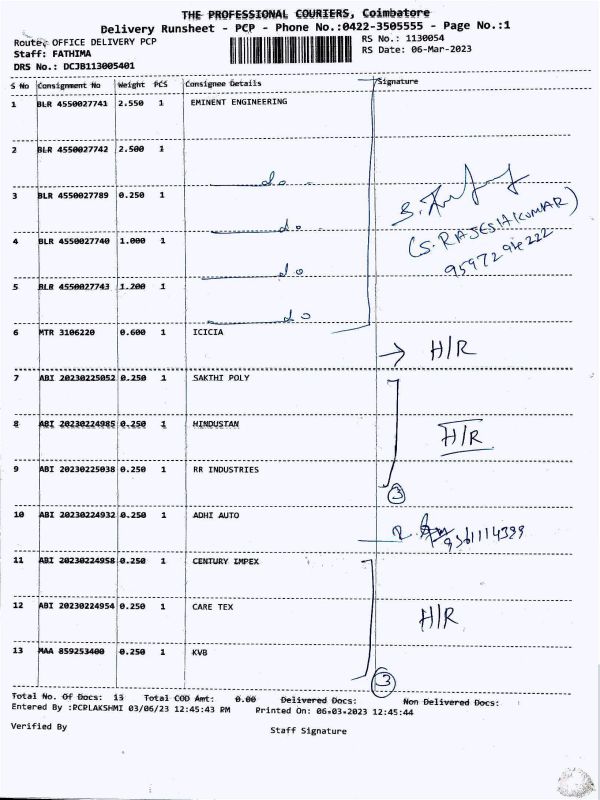 THE PROFESSIONAL COURIERS, Coimbatore
Delivery Runsheet - PCP - Phone No.:0422-3505555 - Page No.:1
Route: OFFICE DELIVERY PCP
RS No.: 1130054
Staff: FATHIMA
RS Date: 06-Mar-2023
DRS No.: DCJB113005401
S No Consignment No Weight PCS Consignee Details Signature
1 BLR 4550027741 2.550 1 EMINENT ENGINEERING
2 BLR 4550027742 2.500 1
do
3 BLR 4550027789 0.250 1
do
(S. RAJESH KUMAR)
4 BLR 4550027740 1.000 1
do
5 BLR 4550027743 1.200 1
do
6 MTR 3106220 0.600 1 ICICIA
H/R
7 ABI 20230225052 0.250 1 SAKTHI POLY
8 ABI 20230224985 0.250 1 HINDUSTAN
H/R
9 ABI 20230225038 0.250 1 RR INDUSTRIES
3
10 ABI 20230224932 0.250 1 ADHI AUTO
11 ABI 20230224958 0.250 1 CENTURY IMPEX
12 ABI 20230224954 0.250 1 CARE TEX
H/R
13 MAA 859253400 0.250 1 KVB
3
Total No. Of Docs: 13 Total COD Amt: 0.00 Delivered Docs: Non Delivered Docs:
Entered By :PCPLAKSHMI 03/06/23 12:45:43 PM Printed On: 06-03-2023 12:45:44
Verified By
Staff Signature